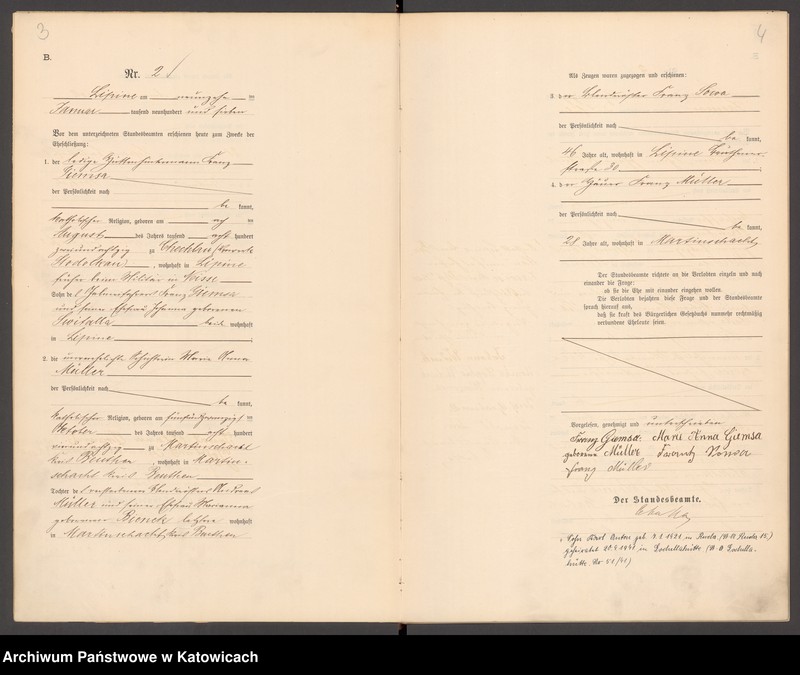 3
B.
Nr. 2
Lipine am neunzehn ten
Januar tausend neunhundert und sieben
Vor dem unterzeichneten Standesbeamten erschienen heute zum Zwecke der
Eheschließung:
1. der ledige Franz
Giemsa
der Persönlichkeit nach
be kannt,
katholischer Religion, geboren am ach ten
August des Jahres tausend acht hundert
zweiundachtzig zu
, wohnhaft in Lipine
früher beim Militär in Neisse
Sohn des Franz Giemsa
und seiner Ehefrau Johanna geborenen
Switalla beide wohnhaft
in Lipine ;
2. die unverehelichte Maria Anna
Müller
der Persönlichkeit nach
be kannt,
katholischer Religion, geboren am fünfundzwanzigs ten
Oktober des Jahres tausend acht hundert
vierundachtzig zu Martinschacht
Kreis Beuthen , wohnhaft in Martin-
schacht Kreis Beuthen
Tochter des verstorbenen
Müller und seiner Ehefrau Marianna
geborenen Bienek letztere wohnhaft
in Martinschacht, Kreis Beuthen
4
Als Zeugen waren zugezogen und erschienen:
3. der Franz
der Persönlichkeit nach
be kannt,
46 Jahre alt, wohnhaft in Lipine Beuthener-
straße 30 ;
4. der Häuer Franz Müller
der Persönlichkeit nach
be kannt,
28 Jahre alt, wohnhaft in Martinschacht,
Der Standesbeamte richtete an die Verlobten einzeln und nach
einander die Frage:
ob sie die Ehe mit einander eingehen wollen.
Die Verlobten bejahten diese Frage und der Standesbeamte
sprach hierauf aus,
daß sie kraft des Bürgerlichen Gesetzbuchs nunmehr rechtmäßig
verbundene Eheleute seien.
Vorgelesen, genehmigt und unterschrieben
Franz Giemsa. Marie Anna Giemsa
geborene Müller
Franz Müller
Der Standesbeamte.
in Ruda
geheiratet in
Nr 51/41)
Archiwum Państwowe w Katowicach